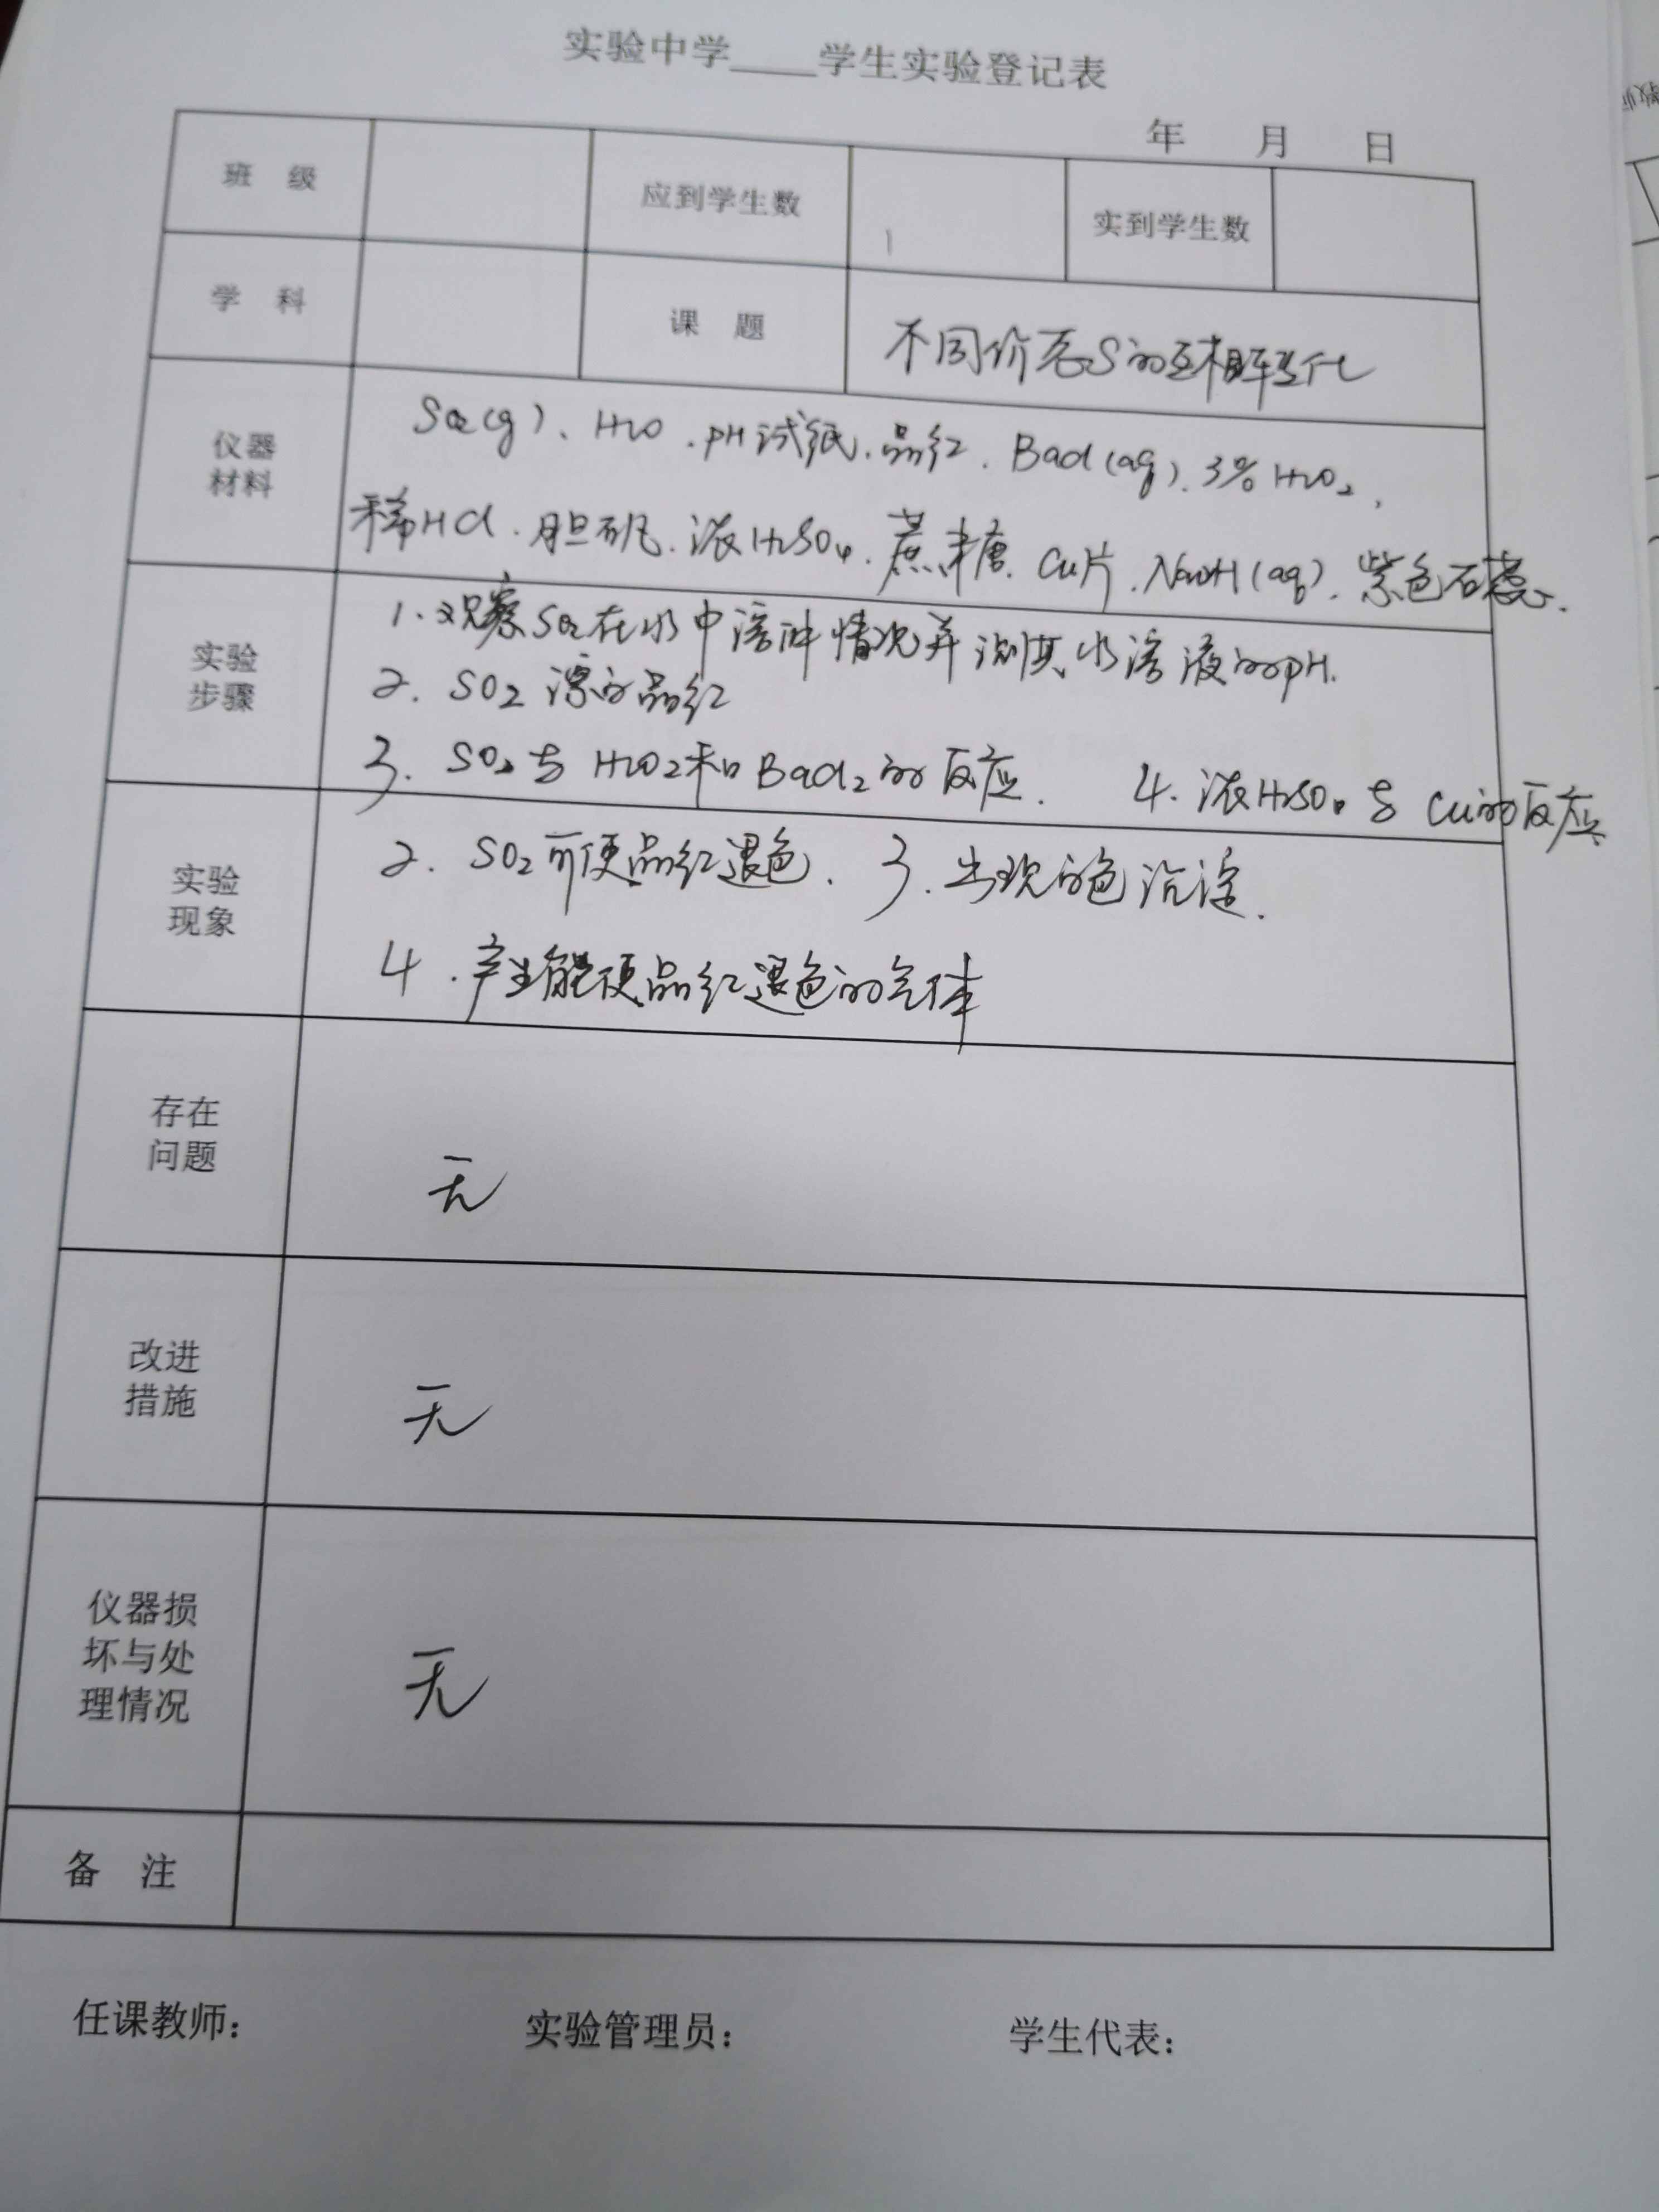 实验中学____学生实验登记表
年 月 日
班 级 应到学生数 实到学生数
学 科 课 题 不同价态S的互相转化
仪器
材料
SO2(g)、H2O、pH试纸、品红、BaCl(aq)、3% H2O2、
稀HCl、胆矾、浓H2SO4、蔗糖、Cu片、NaOH(aq)、紫色石蕊、
实验
步骤
1. 观察SO2在水中溶解情况并测其水溶液的pH.
2. SO2漂白品红
3. SO2与H2O2和BaCl2的反应. 4. 浓H2SO4与Cu的反应
实验
现象
2. SO2可使品红退色. 3. 出现白色沉淀.
4. 产生能使品红退色的气体
存在
问题
无
改进
措施
无
仪器损
坏与处
理情况
无
备 注
任课教师: 实验管理员: 学生代表: